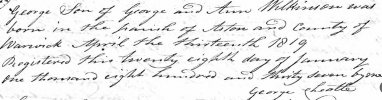 George Son of George and Ann Wilkinson was
born in the parish of Aston and County of
Warwick April the thirteenth 1819
Registered this twenty eighth day of January
one thousand eight hundred and thirty seven by me
George